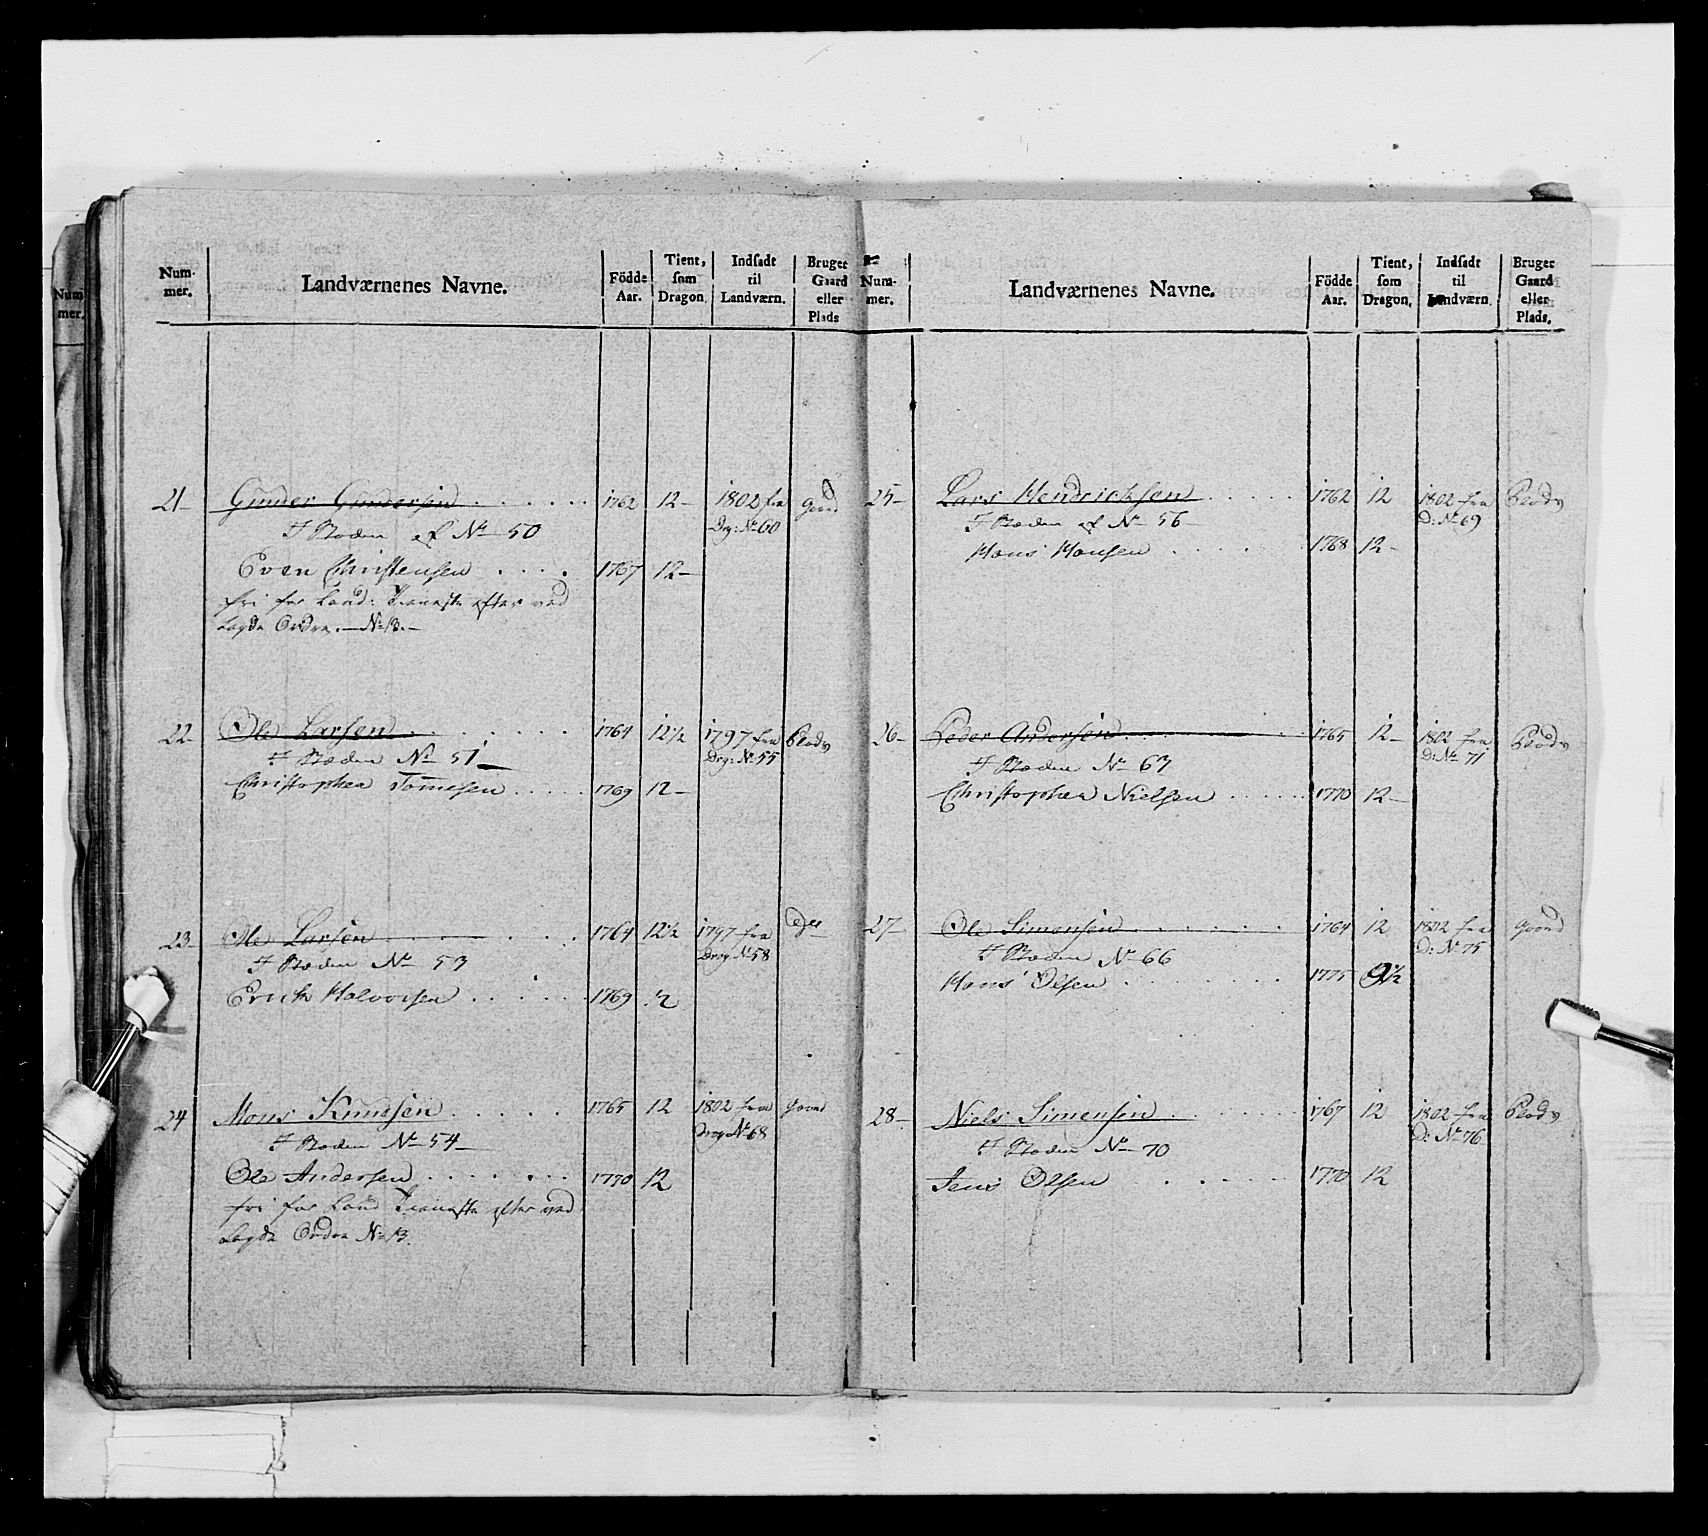 Num-
mer.
Num-
mer.
Landværnenes Navne.
Födde
Aar.
Tient,
som
Dragon.
Indsadt
til
Landværn.
Bruger
Gaard
eller
Plads
21 Gunder Gundersen 1762 12 1802 fra Gaard
Drg: No 60
I Stæden af No 50
Even Christensen 1767 12
fri for Land: Tieneste efter ved
lagde Ordre No 13.
22 Ole Larsen 1764 12½ 1797 fra Plads
Drg: No 55
I Stæden No 51
Christopher Tomesen 1769 12
23 Ole Larsen 1764 12½ 1797 fra
Drag No 58
I Stæden No 53
Erich Halvorsen 1769 12
24 Mons Knudsen 1765 12 1802 fra Gaard
Drag No 68
I Stæden No 54
Ole Andersen 1770 12
fri for Land Tieneste efter ved
lagde Ordre No 13.
Num-
mer.
Landværnenes Navne.
Födde
Aar.
Tient,
som
Dragon.
Indsadt
til
Landværn.
Bruger
Gaard
eller
Plads.
25 Lars Hendrichsen 1762 12 1802 fra Plads
D: No 69
I Stæden af No 56
Hans Hansen 1768 12
26 Peder Andersen 1765 12 1802 fra Plads
D: No 71
I Stæden No 63
Christopher Nielsen 1770 12
27 Ole Simensen 1764 12 1802 fra Gaard
D: No 75
I Stæden No 66
Hans Olsen 1775 9½
28 Niels Simensen 1767 12 1802 fra Plads
D: No 76
I Stæden No 70
Jens Olsen 1770 12